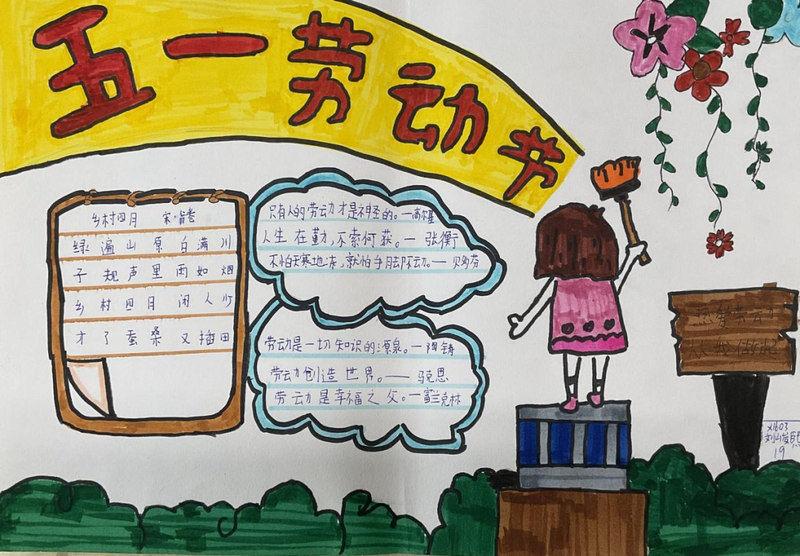 五一劳动节
乡村四月 宋·翁卷
绿遍山原白满川
子规声里雨如烟
乡村四月闲人少
才了蚕桑又插田
只有人的劳动才是神圣的。—高尔基
人生在勤,不索何获。—张衡
不怕天寒地冻,就怕手脚不动。—贝多芬
劳动是一切知识的源泉。—陶铸
劳动创造世界。——马克思
劳动是幸福之父。—富兰克林
X1603
19